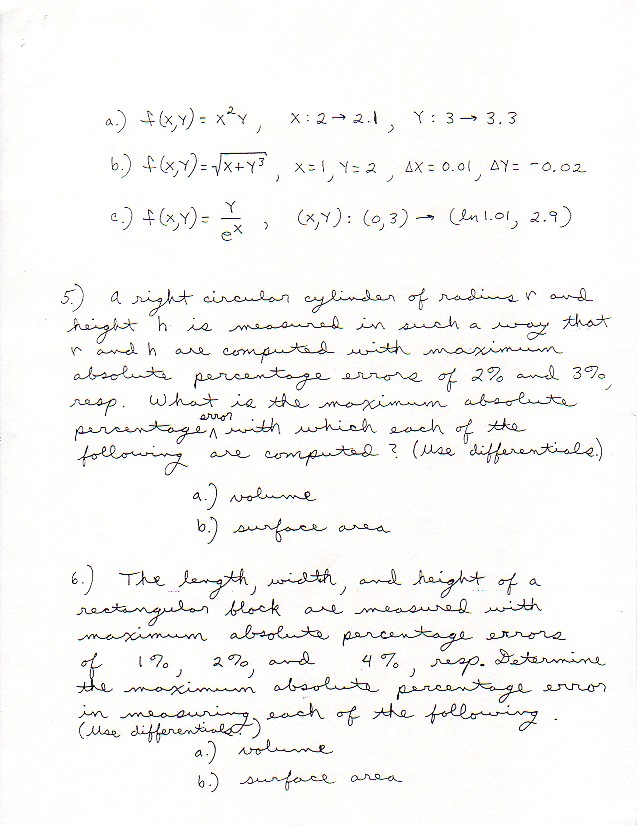 a.) f(x,y) = x²y, x: 2 → 2.1, y: 3 → 3.3
b.) f(x,y) = √(x+y³), x=1, y=2, Δx = 0.01, Δy = -0.02
c.) f(x,y) = y/eˣ, (x,y): (0,3) → (ln 1.01, 2.9)
5.) A right circular cylinder of radius r and
height h is measured in such a way that
r and h are computed with maximum
absolute percentage errors of 2% and 3%,
resp. What is the maximum absolute
percentage error with which each of the
following are computed? (Use differentials.)
a.) volume
b.) surface area
6.) The length, width, and height of a
rectangular block are measured with
maximum absolute percentage errors
of 1%, 2%, and 4%, resp. Determine
the maximum absolute percentage error
in measuring each of the following.
(Use differentials.)
a.) volume
b.) surface area